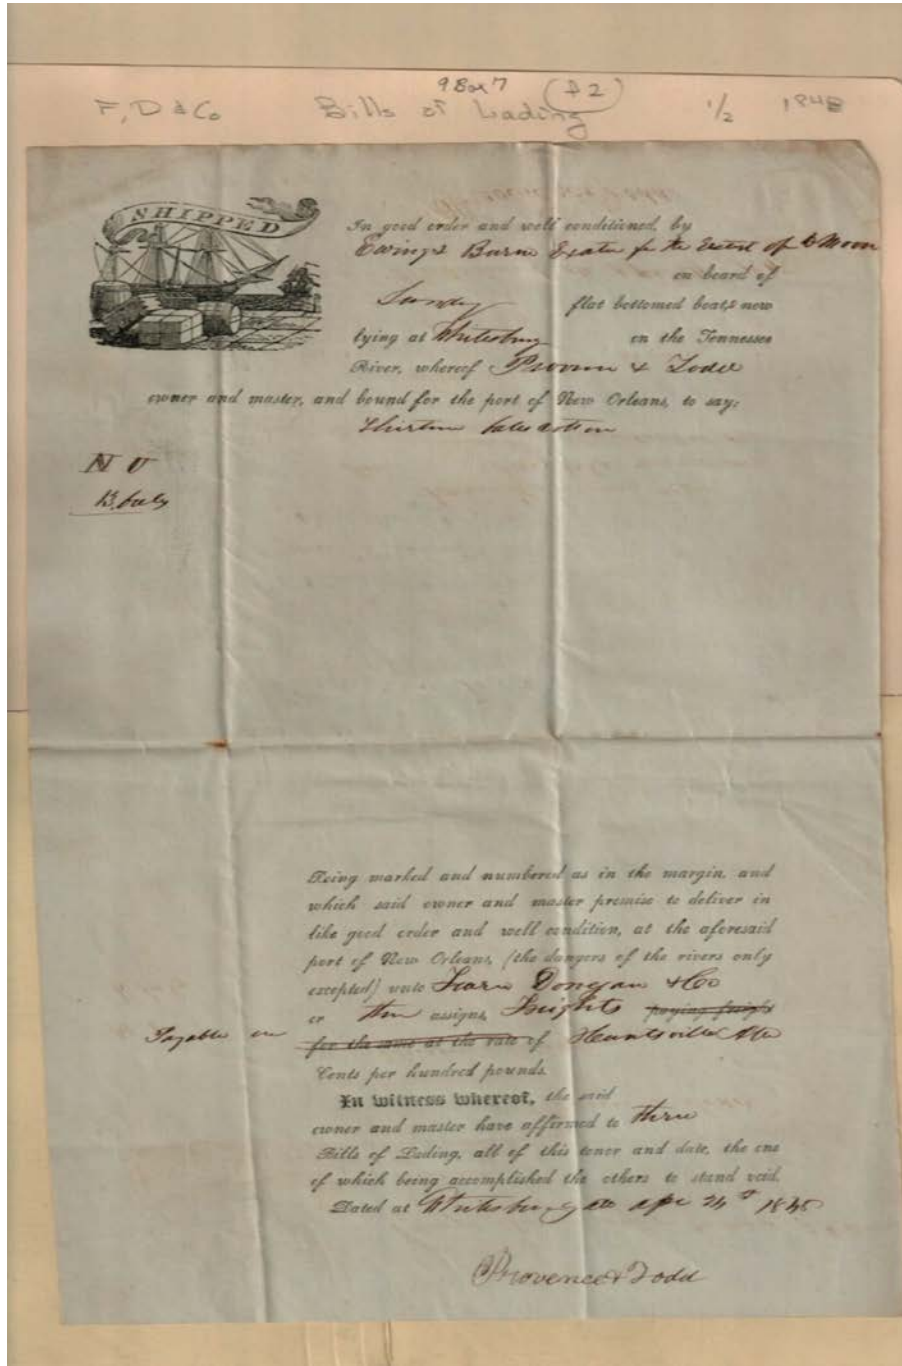 9 Box 7 (#2)
F, D & Co Bills of Lading 1/2 1848
SHIPPED
In good order and well conditioned, by
for the of Moon
on board of
Sundry flat bottomed boats now
lying at Whitesburg on the Tennessee
River, whereof Provence & Todd
owner and master, and bound for the port of New Orleans, to say:
Thirteen bales cotton
N U
13 bales
Being marked and numbered as in the margin, and
which said owner and master promise to deliver in
like good order and well condition, at the aforesaid
port of New Orleans, (the dangers of the rivers only
excepted) unto Fearn Donegan & Co
or their assigns, freights paying freight
Payable in for the same at the rate of Huntsville Ala
Cents per hundred pounds.
In witness whereof, the said
owner and master have affirmed to three
Bills of Lading, all of this tenor and date, the one
of which being accomplished the others to stand void.
Dated at Whitesburg Ala Apr 24th
Provence & Todd